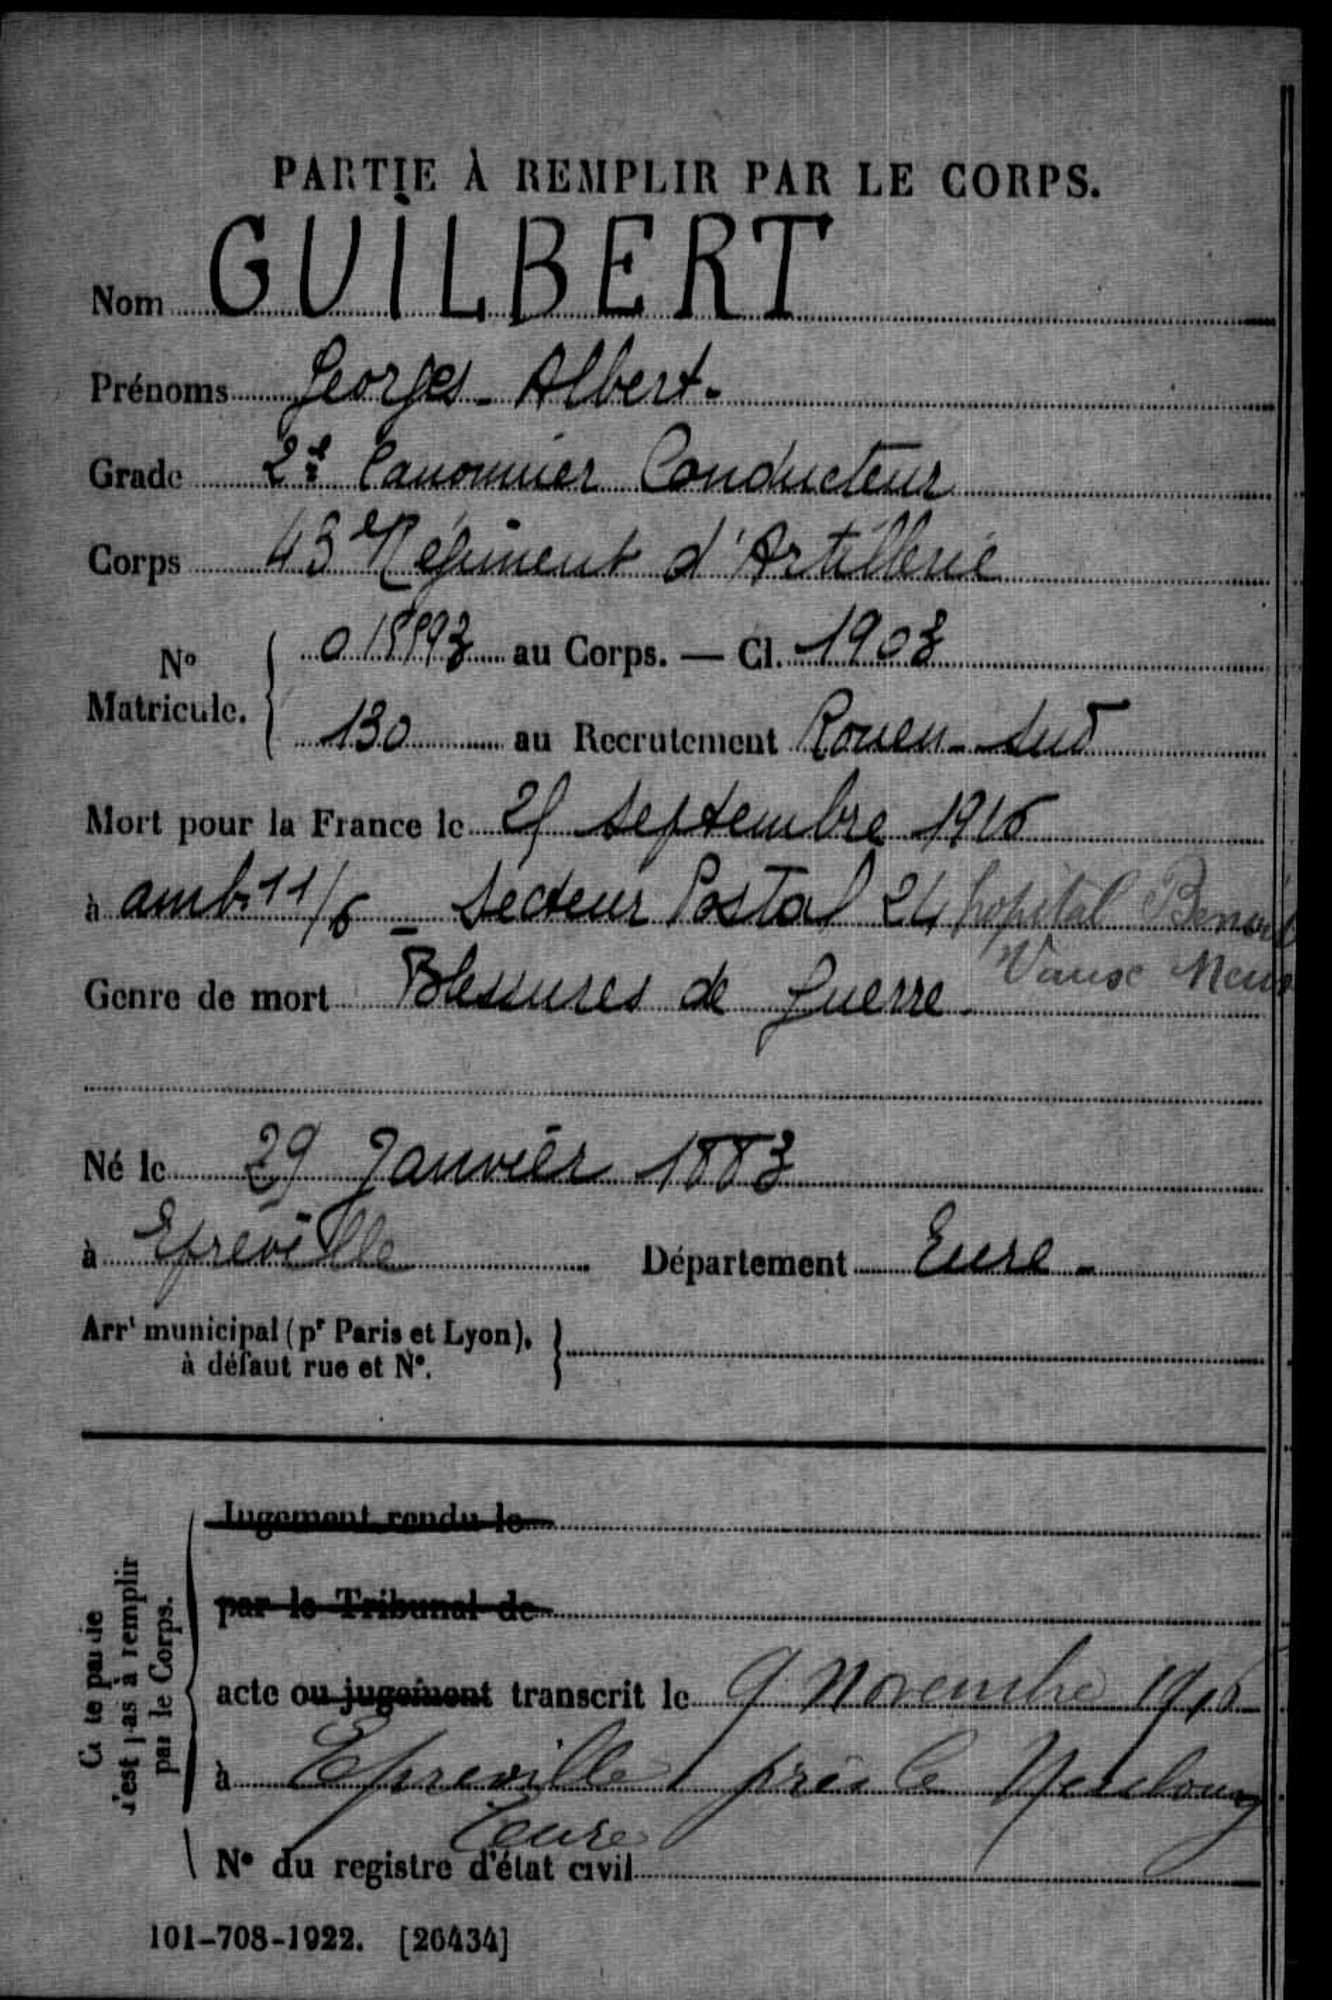 PARTIE À REMPLIR PAR LE CORPS.
Nom GUILBERT
Prénoms Georges - Albert -
Grade 2e Canonnier Conducteur
Corps 43e Régiment d'Artillerie
No Matricule. 018893 au Corps. — Cl. 1903
130 au Recrutement Rouen - Sud
Mort pour la France le septembre 1916
à amb. 11/6 - Secteur Postal 24 hopital
Vaux Meus
Genre de mort Blessures de Guerre -
Né le 29 Janvier 1883
à Epreville Département Eure -
Arrt municipal (pr Paris et Lyon),
à défaut rue et No.
Jugement rendu le
par le Tribunal de
acte ou jugement transcrit le 9 Novembre 1916
à Epreville près le Neubourg
Eure
No du registre d'état civil
Ce te partie
n'est pas à remplir
par le Corps.
101-708-1922. [26434]